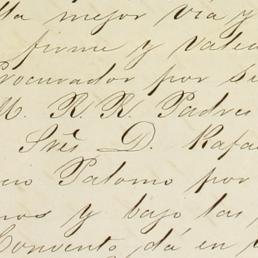 lla mejor via y
firme y valed
Procurador por si
M. R. R. Padres
Sres D. Rafa
cio Palomo por
nos y bajo las
Convento, dá en